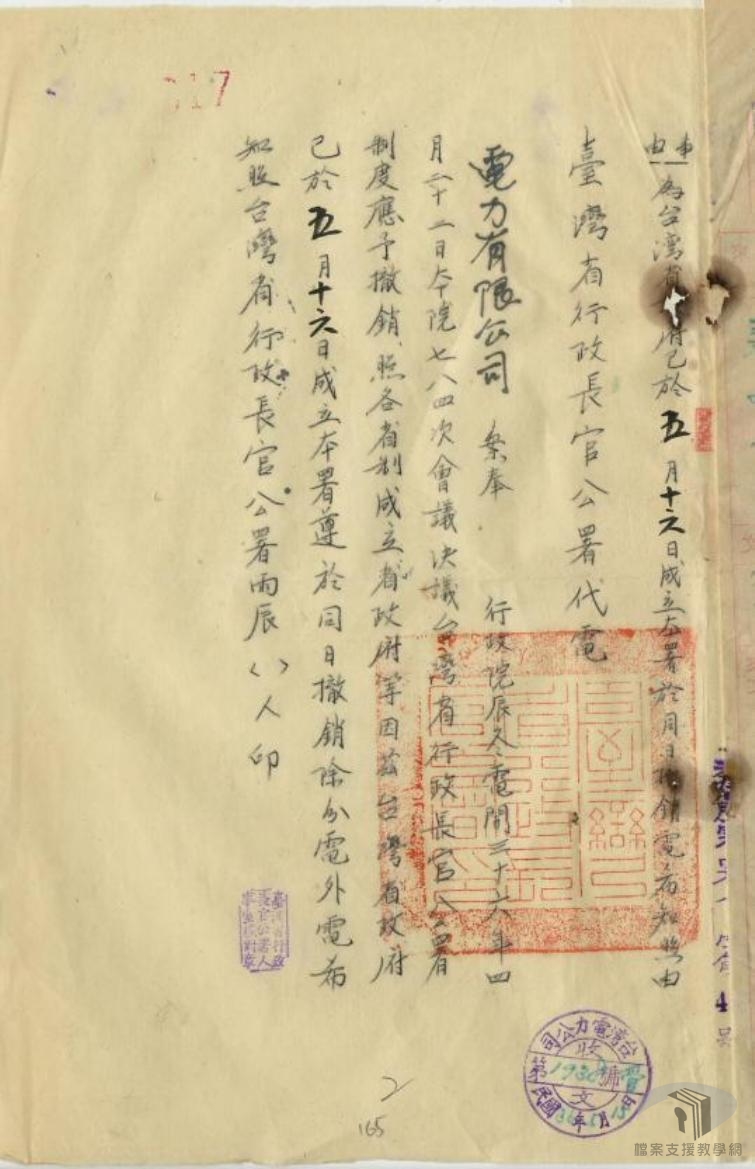 事由
為台灣省 府已於五月十六日成立本署於同日撤銷電希知照由
臺灣省行政長官公署代電
電力有限公司 案奉 行政院辰冬電開三十六年四
月二十二日本院七八四次會議決議台灣省行政長官公署
制度應予撤銷照各省制成立省政府等因茲台灣省政府
已於五月十六日成立本署遵於同日撤銷除分電外電希
知照台灣省行政長官公署雨辰 人印
臺灣省行政
長官公署人
台灣電力公司
收
第 號
文
民國 年 月 日
2
165
檔案支援教學網